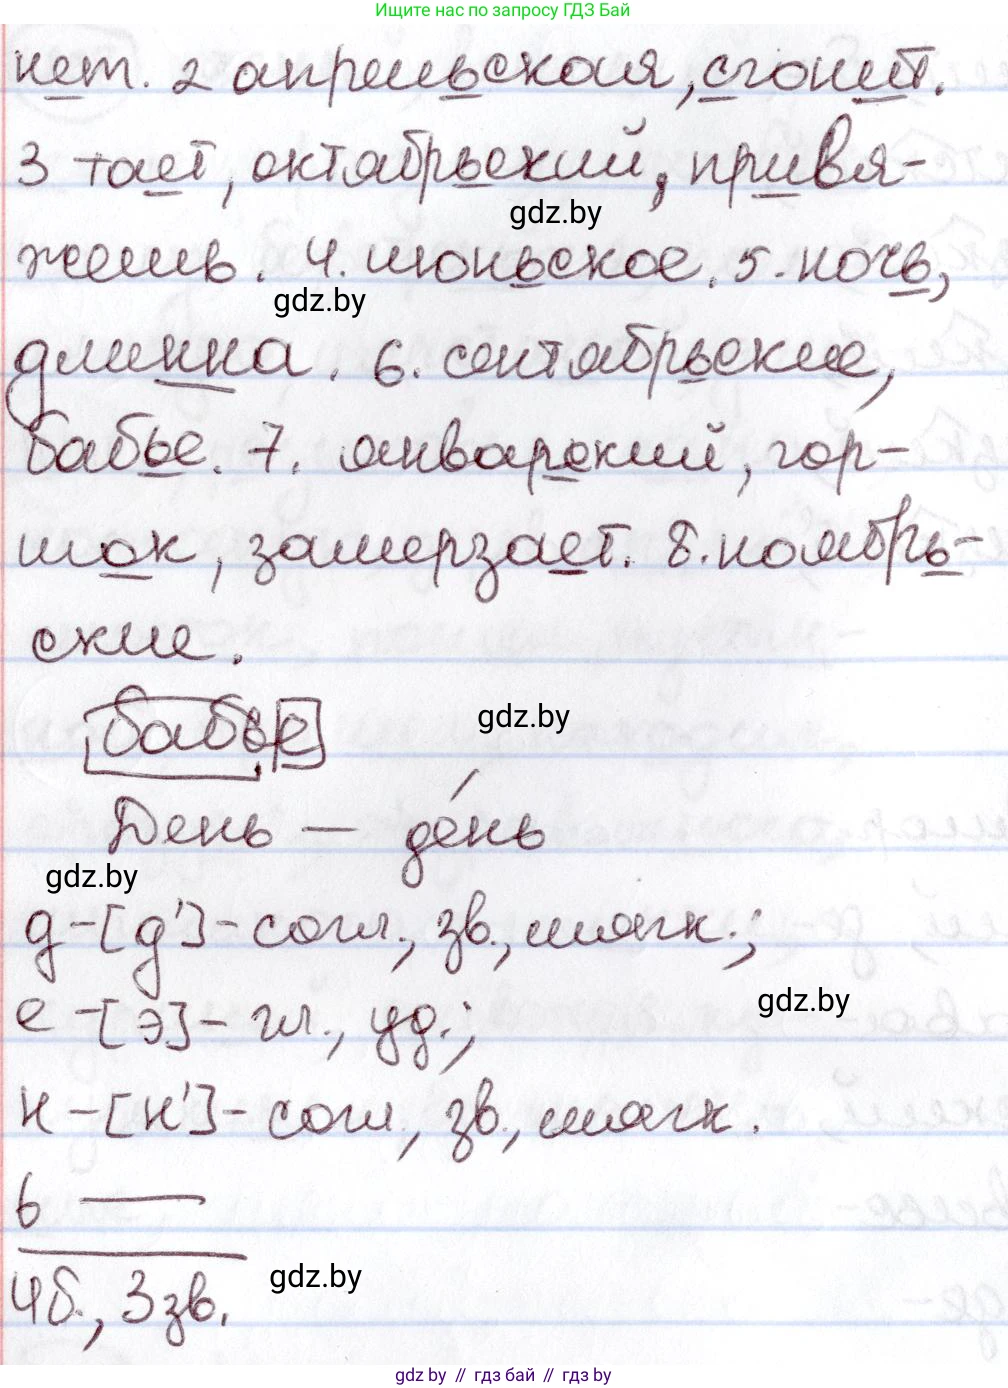 Ищите нас по запросу ГДЗ Бай
нет. 2 апрельская, сгонит.
3 тает, октябрьский, привя-
gdz.by
жешь. 4. июньское. 5. ночь,
gdz.by
длинна. 6. сентябрьские,
бабье. 7. январский, гор-
шок, замерзает. 8. ноябрь-
ские.
бабье
gdz.by
День – де́нь
gdz.by
д-[д']-согл., зв., мягк.;
gdz.by
е-[э]-гл., уд.;
н-[н']-согл., зв., мягк.
ь —
gdz.by
4б., 3зв.
gdz.by // гдз бай // гдз by